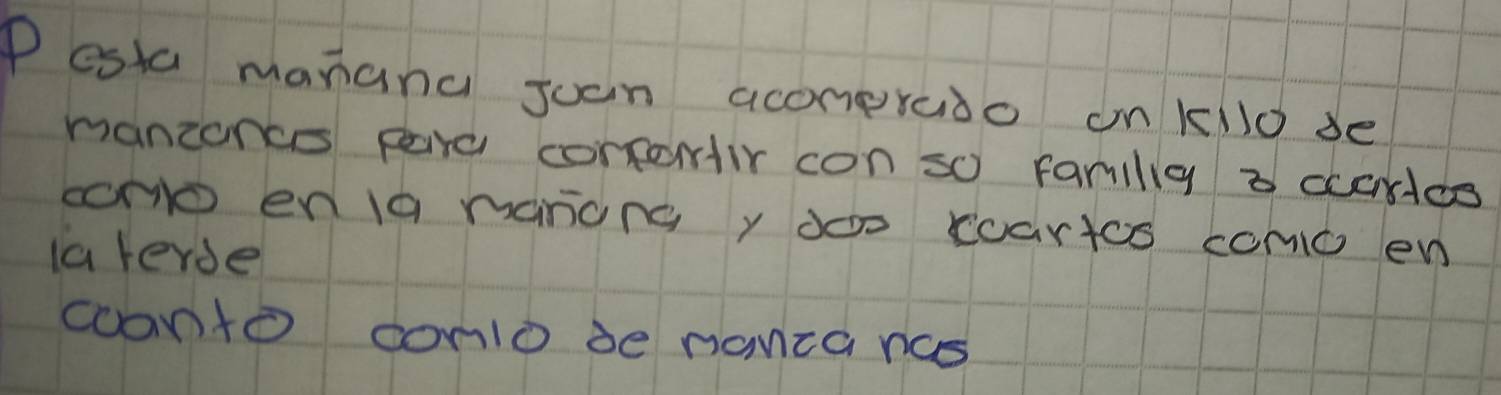 P esta mañana Juan acomprado un kilo de
manzanas para compartir con su familia 2 cuartos
comio en la mañana y dos cuartos comio en
la terde
cuanto comio de manzanas